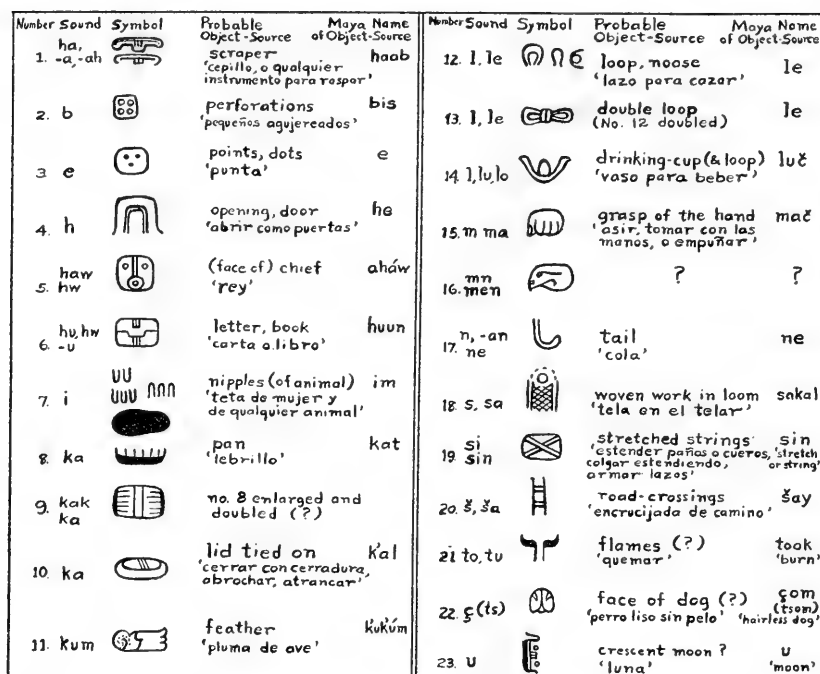 Number Sound Symbol Probable Object-Source Maya Name of Object-Source
1. ha, -a, -ah scraper haab
'cepillo, o qualquier
instrumento para raspar'
2. b perforations bis
'pequeños agujereados'
3. e points, dots e
'punta'
4. h opening, door he
'abrir como puertas'
5. haw hw (face of) chief aháw
'rey'
6. hu, hw -u letter, book huun
'carta o libro'
7. i nipples (of animal) im
'teta de mujer y
de qualquier animal'
8. ka pan kat
'lebrillo'
9. kak ka no. 8 enlarged and
doubled (?)
10. ka lid tied on k'al
'cerrar con cerradura,
abrochar, atrancar'
11. kum feather k'uk'úm
'pluma de ave'
Number Sound Symbol Probable Object-Source Maya Name of Object-Source
12. l, le loop, noose le
'lazo para cazar'
13. l, le double loop le
(No. 12 doubled)
14. l, lu, lo drinking-cup (& loop) luč
'vaso para beber'
15. m ma grasp of the hand mač
'asir, tomar con las
manos, o empuñar'
16. mn men ? ?
17. n, -an ne tail ne
'cola'
18. s, sa woven work in loom sakal
'tela en el telar'
19. si sin stretched strings sin
'estender paños o cueros, 'stretch
colgar estendiendo, or string'
armar lazos'
20. š, ša road-crossings šay
'encrucijada de camino'
21 to, tu flames (?) took
'quemar' 'burn'
22. ç (ts) face of dog (?) çom (tsom)
'perro liso sin pelo' 'hairless dog'
23. u crescent moon ? u
'luna' 'moon'